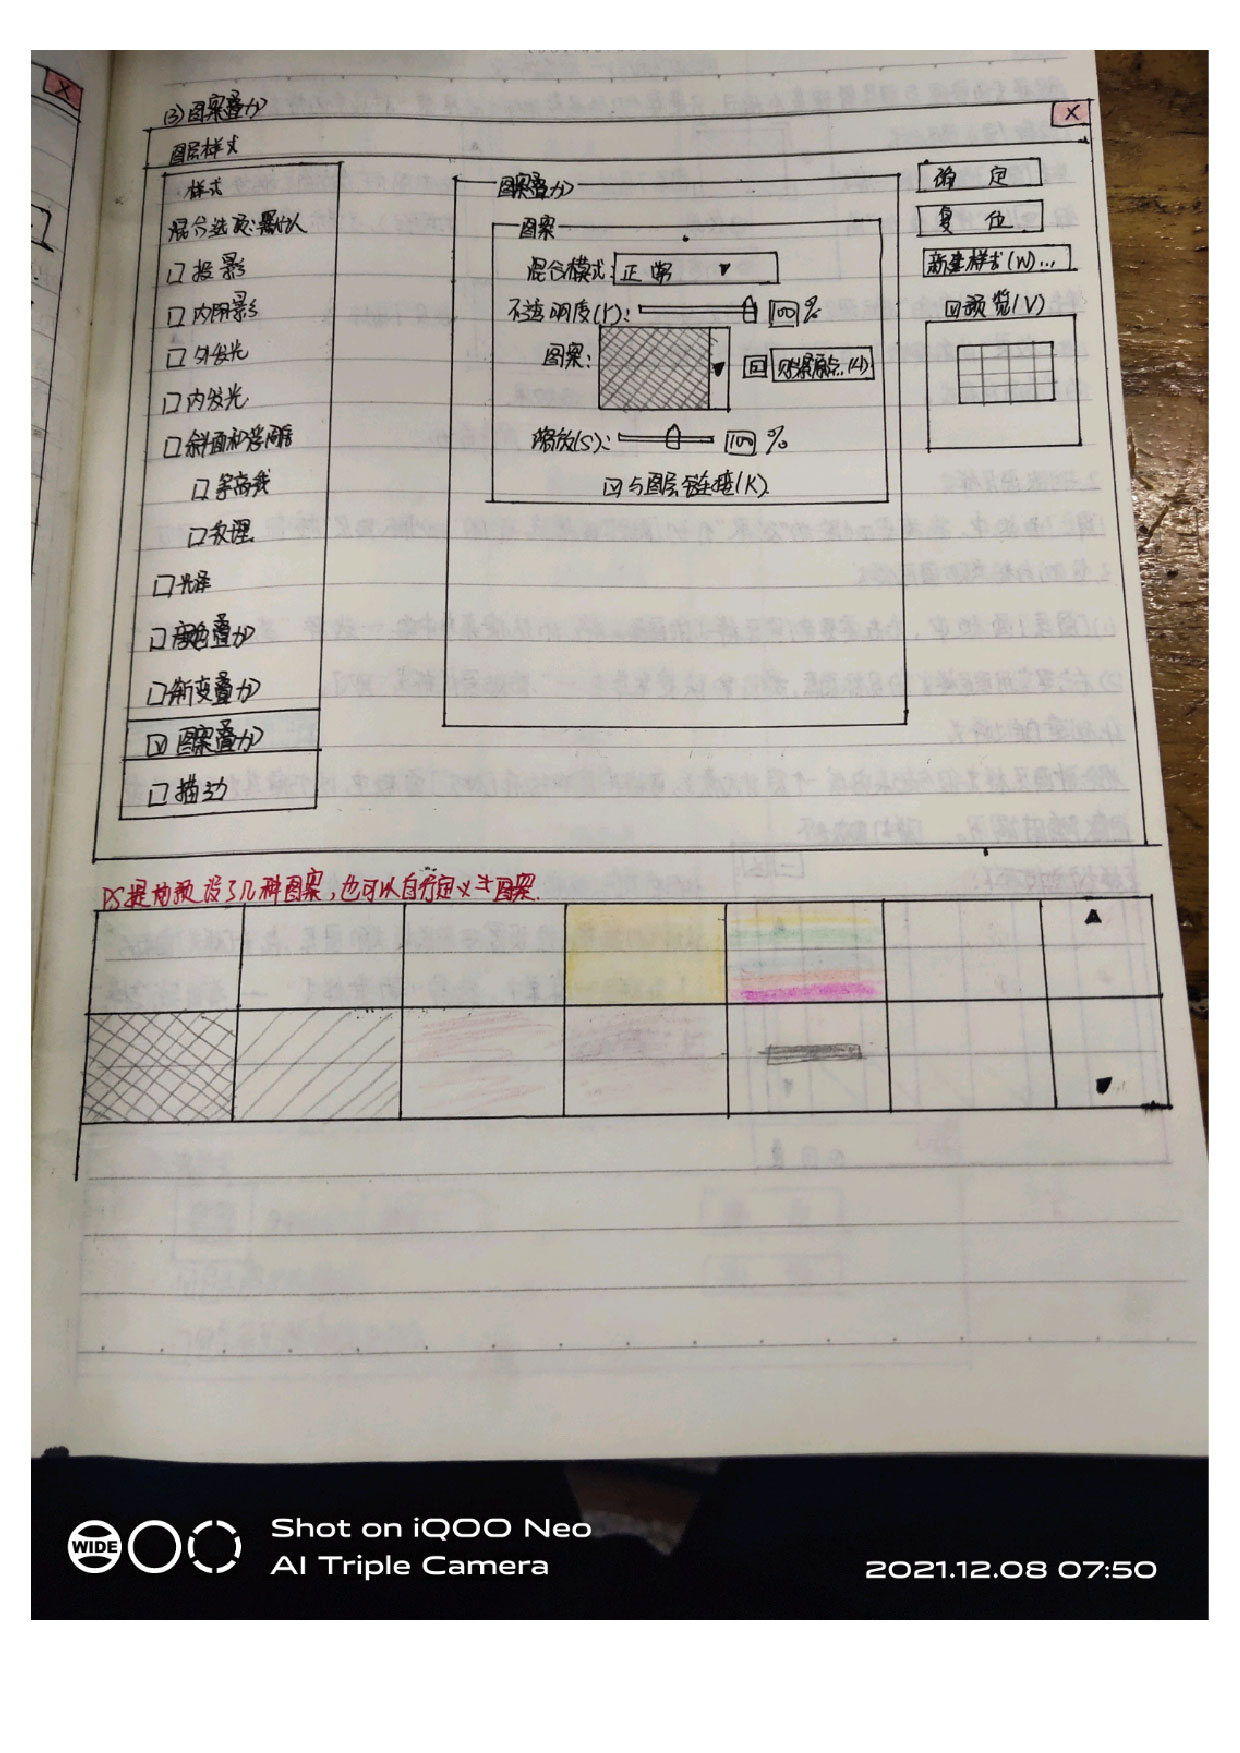 (3)图案叠加
X
图层样式
样式
混合选项:默认
投影
内阴影
外发光
内发光
斜面和浮雕
等高线
纹理
光泽
颜色叠加
渐变叠加
图案叠加
描边
图案叠加
图案
混合模式: 正常
不透明度(Y): 100 %
图案: 贴紧原点(A)
缩放(S): 100 %
与图层链接(K)
确定
复位
新建样式(W)...
预览(V)
PS提供预设了几种图案,也可以自行定义图案.
WIDE
Shot on iQOO Neo
AI Triple Camera
2021.12.08 07:50